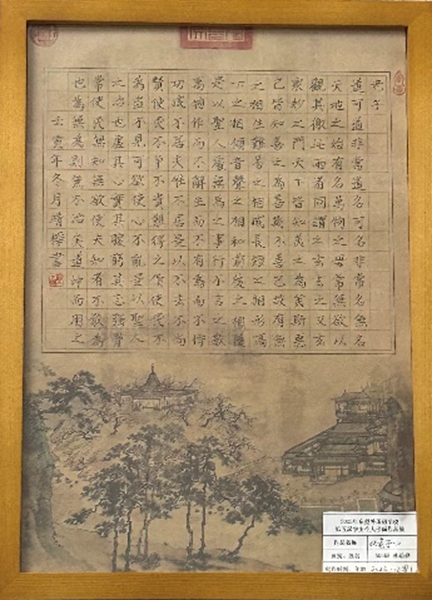 老子
道可道非常道名可名非常名無名
天地之始有名萬物之母常無欲以
觀其徼此兩者同謂之玄玄之又玄
眾妙之門天下皆知美之為美斯惡
已皆知善之為善斯不善已故有無
之相生難易之相成長短之相形高
下之相傾音聲之相和前後之相隨
是以聖人處無為之事行不言之教
萬物作而不辭生而不有為而不恃
功成不居夫唯不居是以不去不尚
賢使民不爭不貴難得之貨使民不
為盜不見可欲使心不亂是以聖人
之治也虛其心實其腹弱其志強骨
常使民無知無欲使夫知者不敢為
也為無為則無不治矣道沖而用之
壬寅年冬月晴書